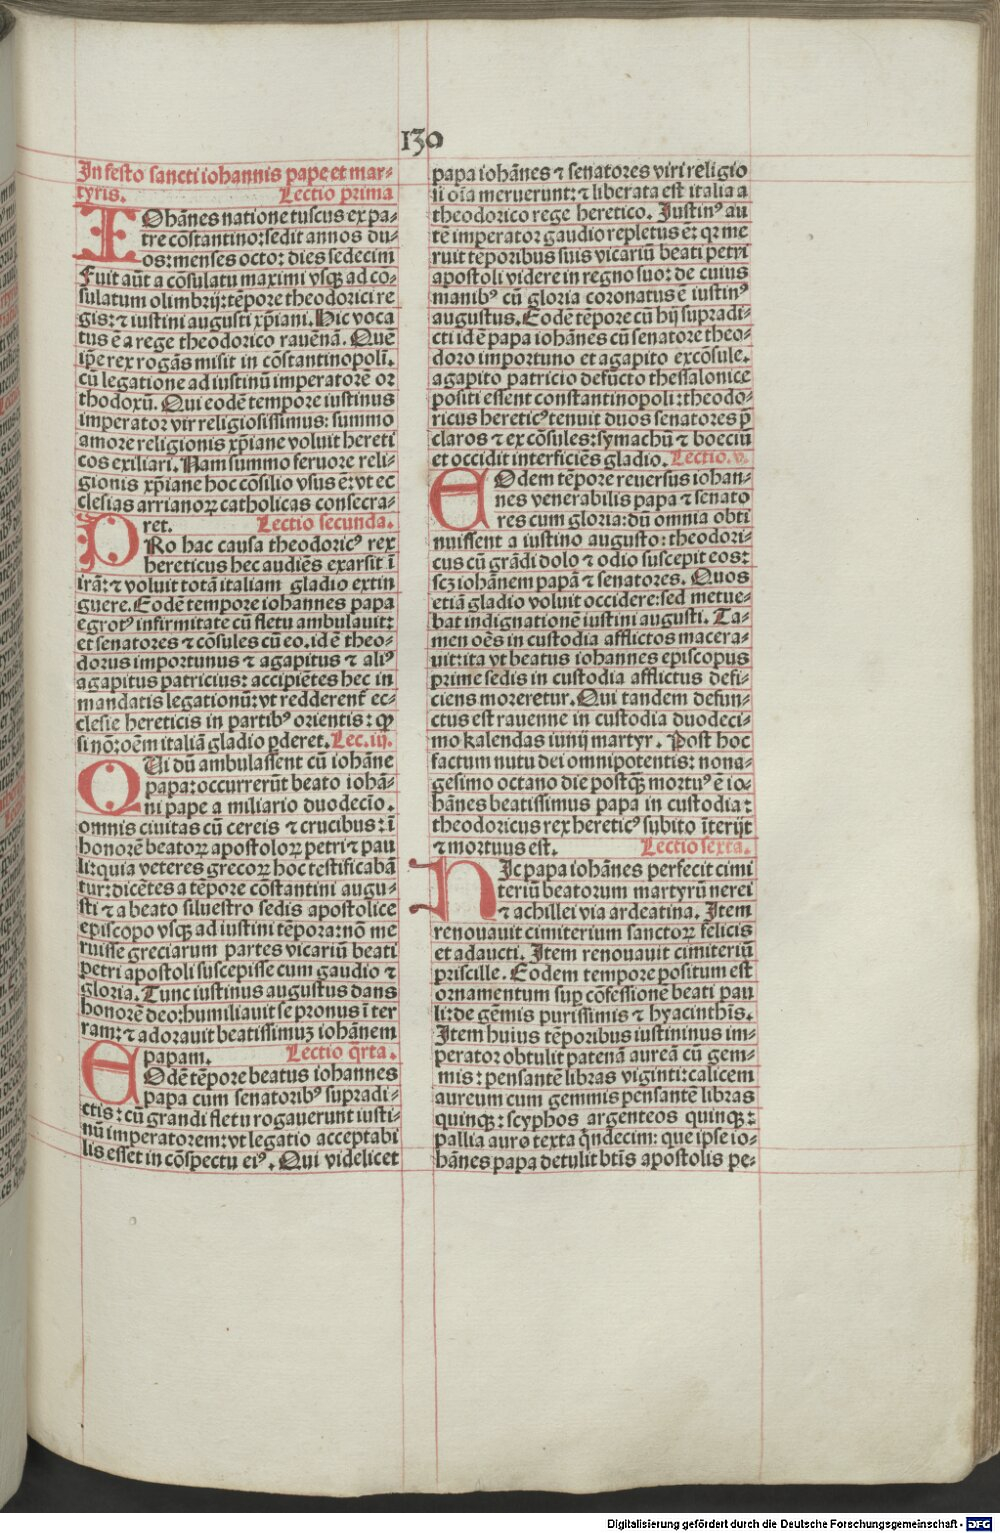 130
In festo sancti iohannis pape et mar-
tyris. Lectio prima
IOhānes natione tuscus ex pa-
tre cōstantino: sedit annos du-
os: menses octo: dies sedecim
Fuit aūt a cōsulatu maximi vsqꝫ ad cō-
sulatum olimbrij: tēpore theodorici re
gis: ⁊ iustini augusti xp̄iani. Hic voca
tus ē a rege theodorico rauēnā. Quē
ip̄e rex rogās misit in cōstantinopolī.
cū legatione ad iustinū imperatorē or
thodoxū. Qui eodē tempore iustinus
imperator vir religiosissimus: summo
amore religionis xp̄iane voluit hereti
cos exiliari. Nam summo feruore reli-
gionis xp̄iane hoc cōsilio vsus ē: vt ec
clesias arrianoꝝ catholicas consecra-
ret. Lectio secunda.
PRo hac causa theodoricꝰ rex
hereticus hec audiēs exarsit ī
irā: ⁊ voluit totā italiam gladio extin
guere. Eodē tempore iohannes papa
egrotꝰ infirmitate cū fletu ambulauit:
et senatores ⁊ cōsules cū eo. id ē theo-
dorus importunus ⁊ agapitus ⁊ aliꝰ
agapitus patricius: accipiētes hec in
mandatis legationū: vt redderent̄ ec-
clesie hereticis in partibꝰ orientis: ꝙ
si nō: oēm italiā gladio ꝑderet. Lec. iij.
QUi dū ambulassent cū iohāne
papa: occurrerūt beato iohā-
ni pape a miliario duodecīo.
omnis ciuitas cū cereis ⁊ crucibus: ī
honorē beatoꝝ apostoloꝝ petri ⁊ pau
li: quia veteres grecoꝝ hoc testificabā
tur: dicētes a tēpore cōstantini augu-
sti ⁊ a beato siluestro sedis apostolice
episcopo vsqꝫ ad iustini tēpora: nō me
ruisse greciarum partes vicariū beati
petri apostoli suscepisse cum gaudio ⁊
gloria. Tunc iustinus augustus dans
honorē deo: humiliauit se pronus ī ter
ram: ⁊ adorauit beatissimuꝫ iohānem
papam. Lectio q̄rta.
EOdē tēpore beatus iohannes
papa cum senatoribꝰ supradi-
ctis: cū grandi fletu rogauerunt iusti-
nū imperatorem: vt legatio acceptabi
lis esset in cōspectu eiꝰ. Qui videlicet
papa iohānes ⁊ senatores viri religio
si oīa meruerunt: ⁊ liberata est italia a
theodorico rege heretico. Justinꝰ au
tē imperator gaudio repletus ē: qꝛ me
ruit tēporibus suis vicariū beati petri
apostoli videre in regno suo: de cuius
manibꝰ cū gloria coronatus ē iustinꝰ
augustus. Eodē tēpore cū hij supradi-
cti id ē papa iohānes cū senatore theo-
doro importuno et agapito excōsule.
agapito patricio defūcto thessalonice
positi essent constantinopoli: theodo-
ricus hereticꝰ tenuit duos senatores p̄
claros ⁊ ex cōsules: symachū ⁊ boeciū
et occidit interficiēs gladio. Lectio. v.
EOdem tēpore reuersus iohan-
nes venerabilis papa ⁊ senato
res cum gloria: dū omnia obti
nuissent a iustino augusto: theodori-
cus cū grādi dolo ⁊ odio suscepit eos:
scꝫ iohānem papā ⁊ senatores. Quos
etiā gladio voluit occidere: sed metue-
bat indignationē iustini augusti. Ta-
men oēs in custodia afflictos macera-
uit: ita vt beatus iohannes episcopus
prime sedis in custodia afflictus defi-
ciens moreretur. Qui tandem defun-
ctus est rauenne in custodia duodeci-
mo kalendas iunij martyr. Post hoc
factum nutu dei omnipotentis: nona-
gesimo octano die postqꝫ mortuꝰ ē io-
hānes beatissimus papa in custodia:
theodoricus rex hereticꝰ subito īterijt
⁊ mortuus est. Lectio sexta.
HIc papa iohānes perfecit cimi
teriū beatorum martyrū nerei
⁊ achillei via ardeatina. Item
renouauit cimiterium sanctoꝝ felicis
et adaucti. Item renouauit cimiteriū
priscille. Eodem tempore positum est
ornamentum suꝑ cōfessionē beati pau
li: de gēmis purissimis ⁊ hyacinthis.
Item huius tēporibus iustininus im-
perator obtulit patenā aureā cū gem-
mis: pensantē libras viginti: calicem
aureum cum gemmis pensantē libras
quinqꝫ: scyphos argenteos quinqꝫ:
pallia auro texta q̄ndecim: que ipse io-
hānes papa detulit btīs apostolis pe-
Digitalisierung gefördert durch die Deutsche Forschungsgemeinschaft - DFG